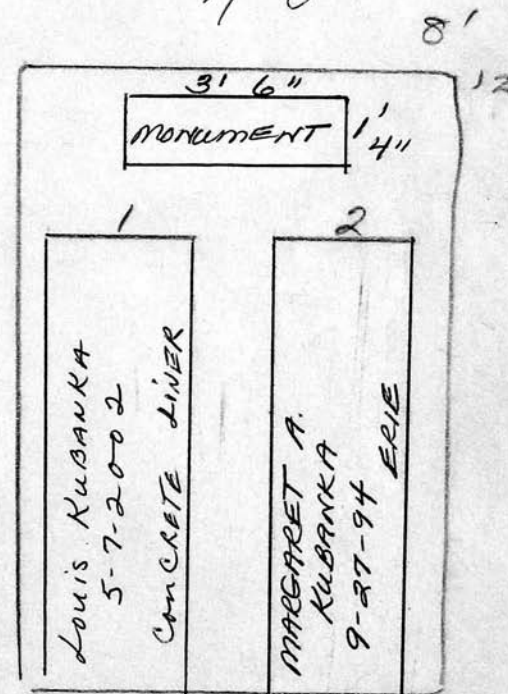 8'
3' 6"
MONUMENT
1'
4"
1
2
Louis KUBANKA
5-7-2002
CONCRETE LINER
MARGARET A.
KUBANKA
9-27-94
ERIE